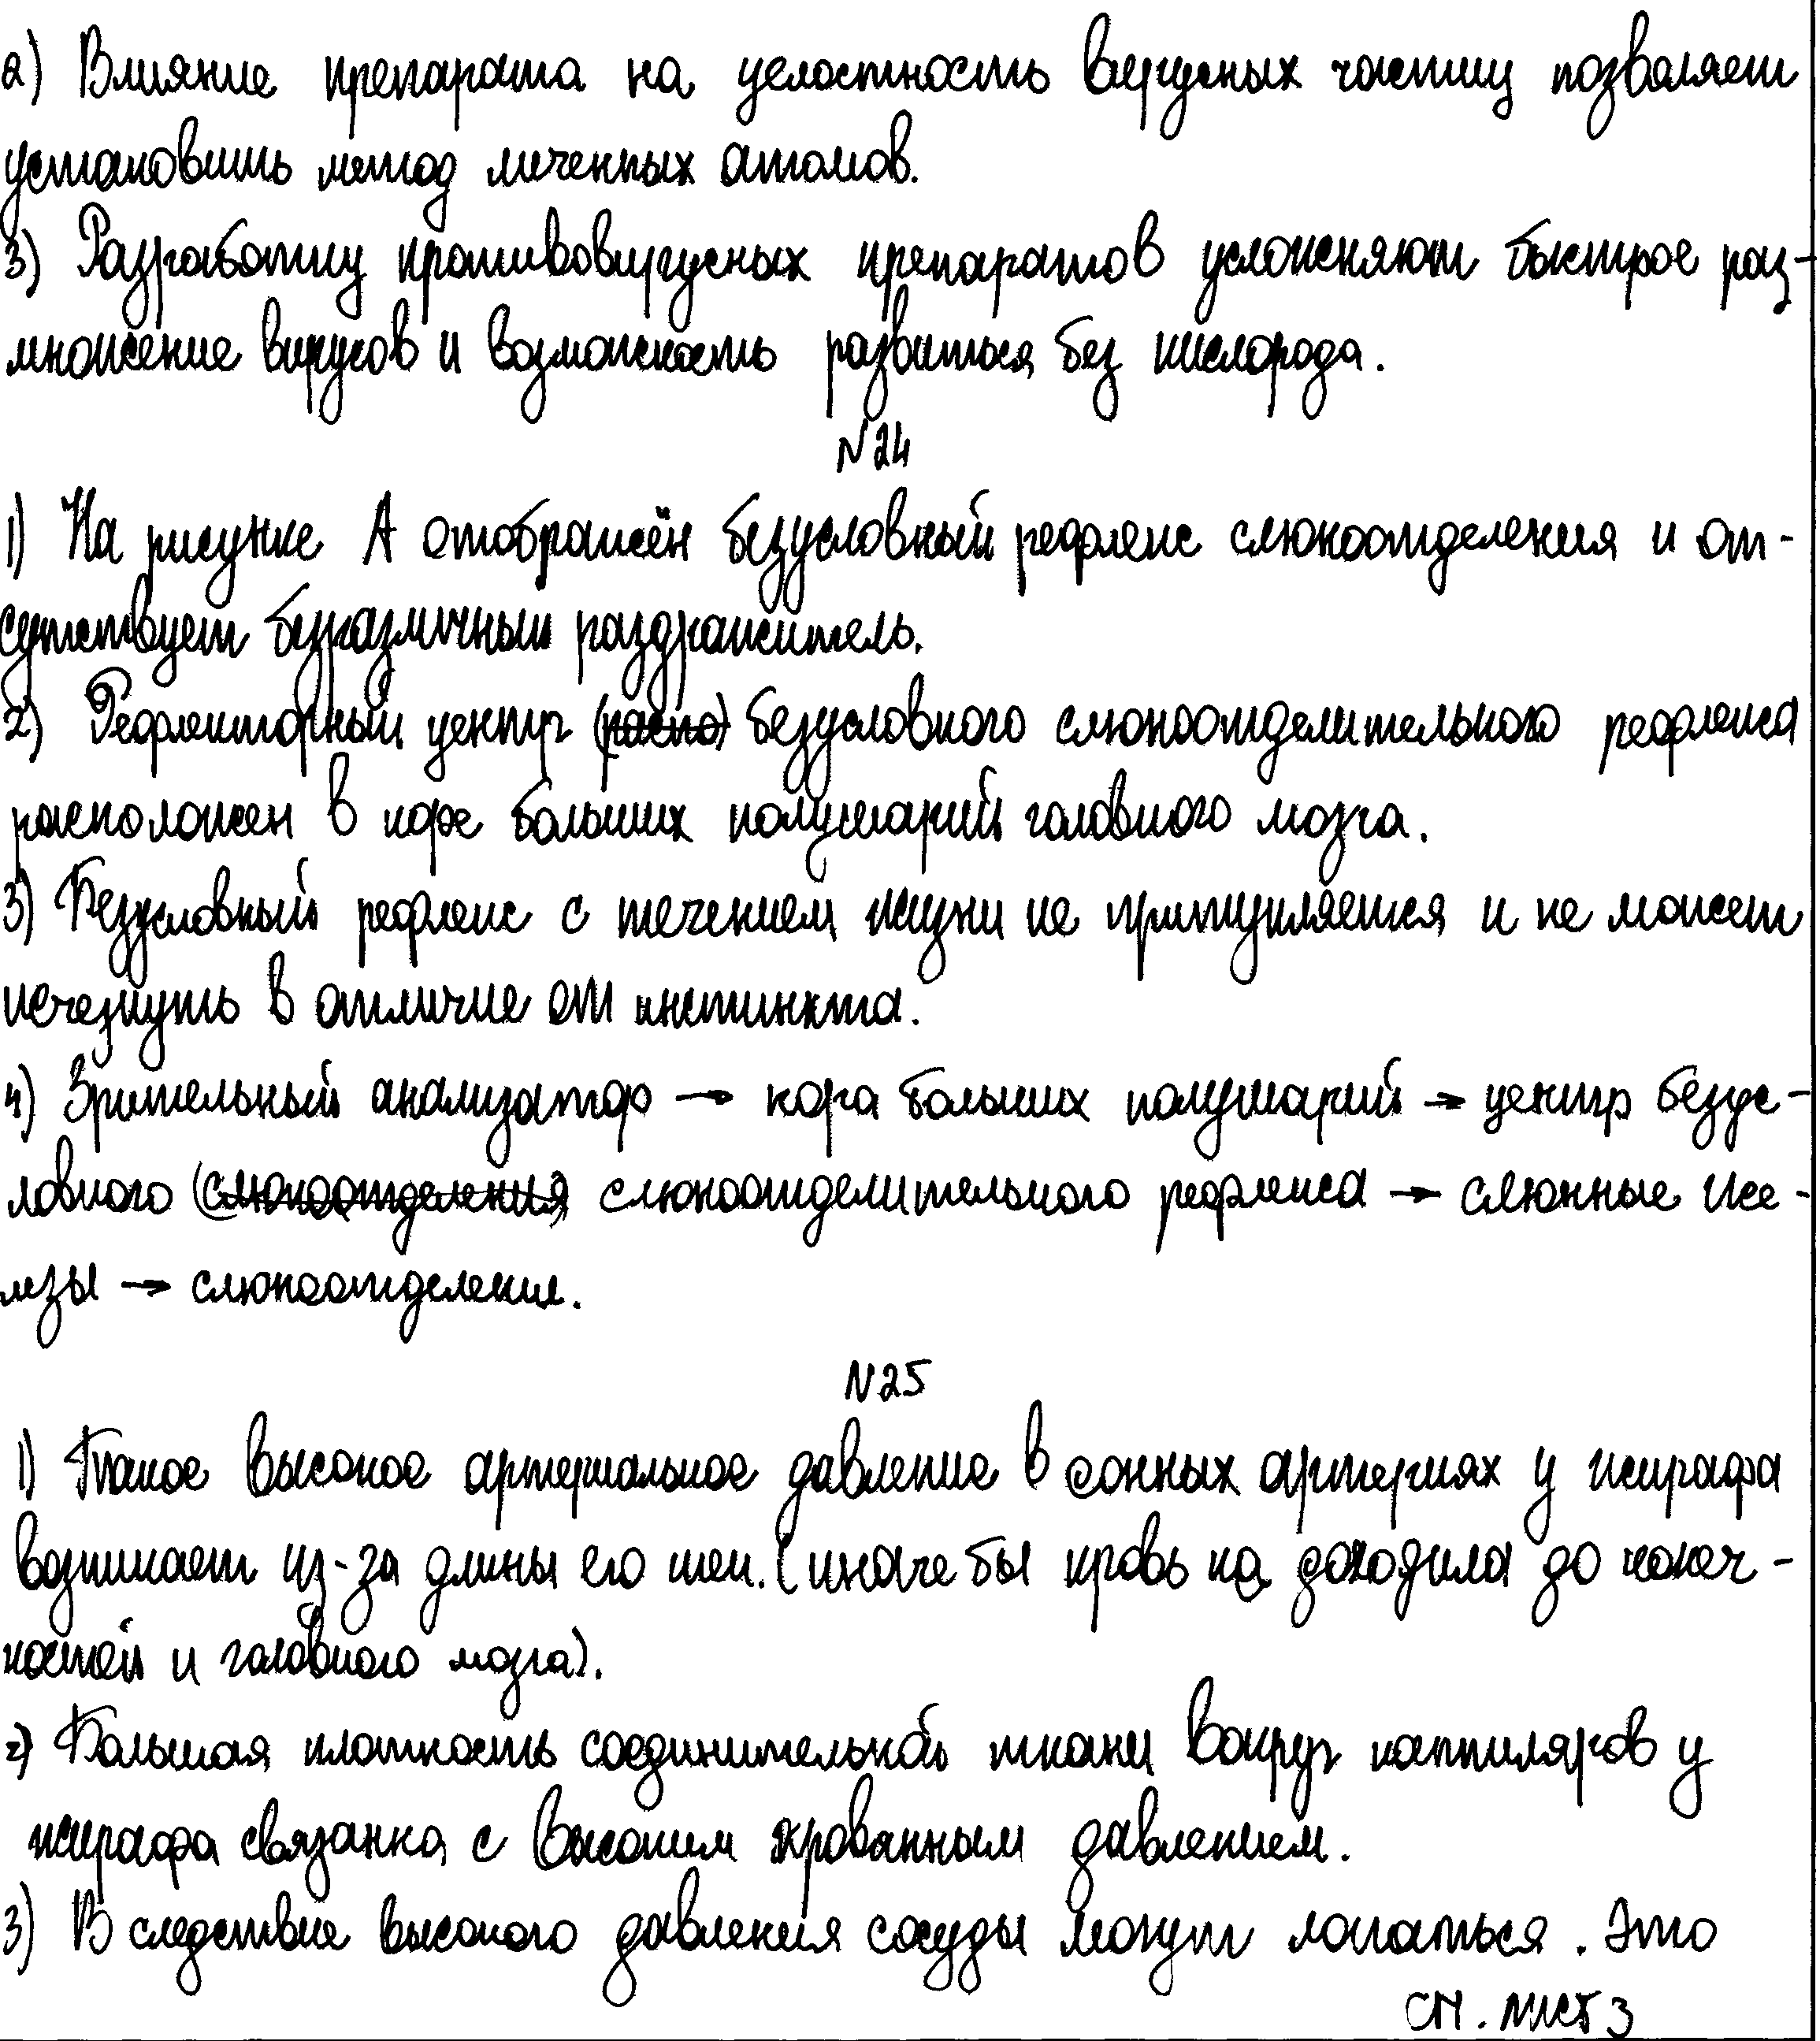 2) Влияние препарата на целостность вирусных частиц позволяет
установить метод меченных атомов.
3) Разработку противовирусных препаратов усложняют быстрое раз-
множение вирусов и возможность развиться без кислорода.
N24
1) На рисунке А отображён безусловный рефлекс слюноотделения и от-
сутствует безразличный раздражитель.
2) Рефлекторный центр (распо) безусловного слюноотделительного рефлекса
расположен в коре больших полушарий головного мозга.
3) Безусловный рефлекс с течением жизни не притупляется и не может
исчезнуть в отличие от инстинкта.
4) Зрительный анализатор → кора больших полушарий → центр безус-
ловного (слюноотделения) слюноотделительного рефлекса → слюнные же-
лезы → слюноотделение.
N25
1) Такое высокое артериальное давление в сонных артериях у жирафа
возникает из-за длины его шеи. (иначе бы кровь не доходила до конеч-
ностей и головного мозга).
2) Большая плотность соединительной ткани вокруг каппиляров у
жирафа связанна с высоким крованным давлением.
3) В следствие высокого давления сосуды могут лопаться. Это
СМ. ЛИСТ 3